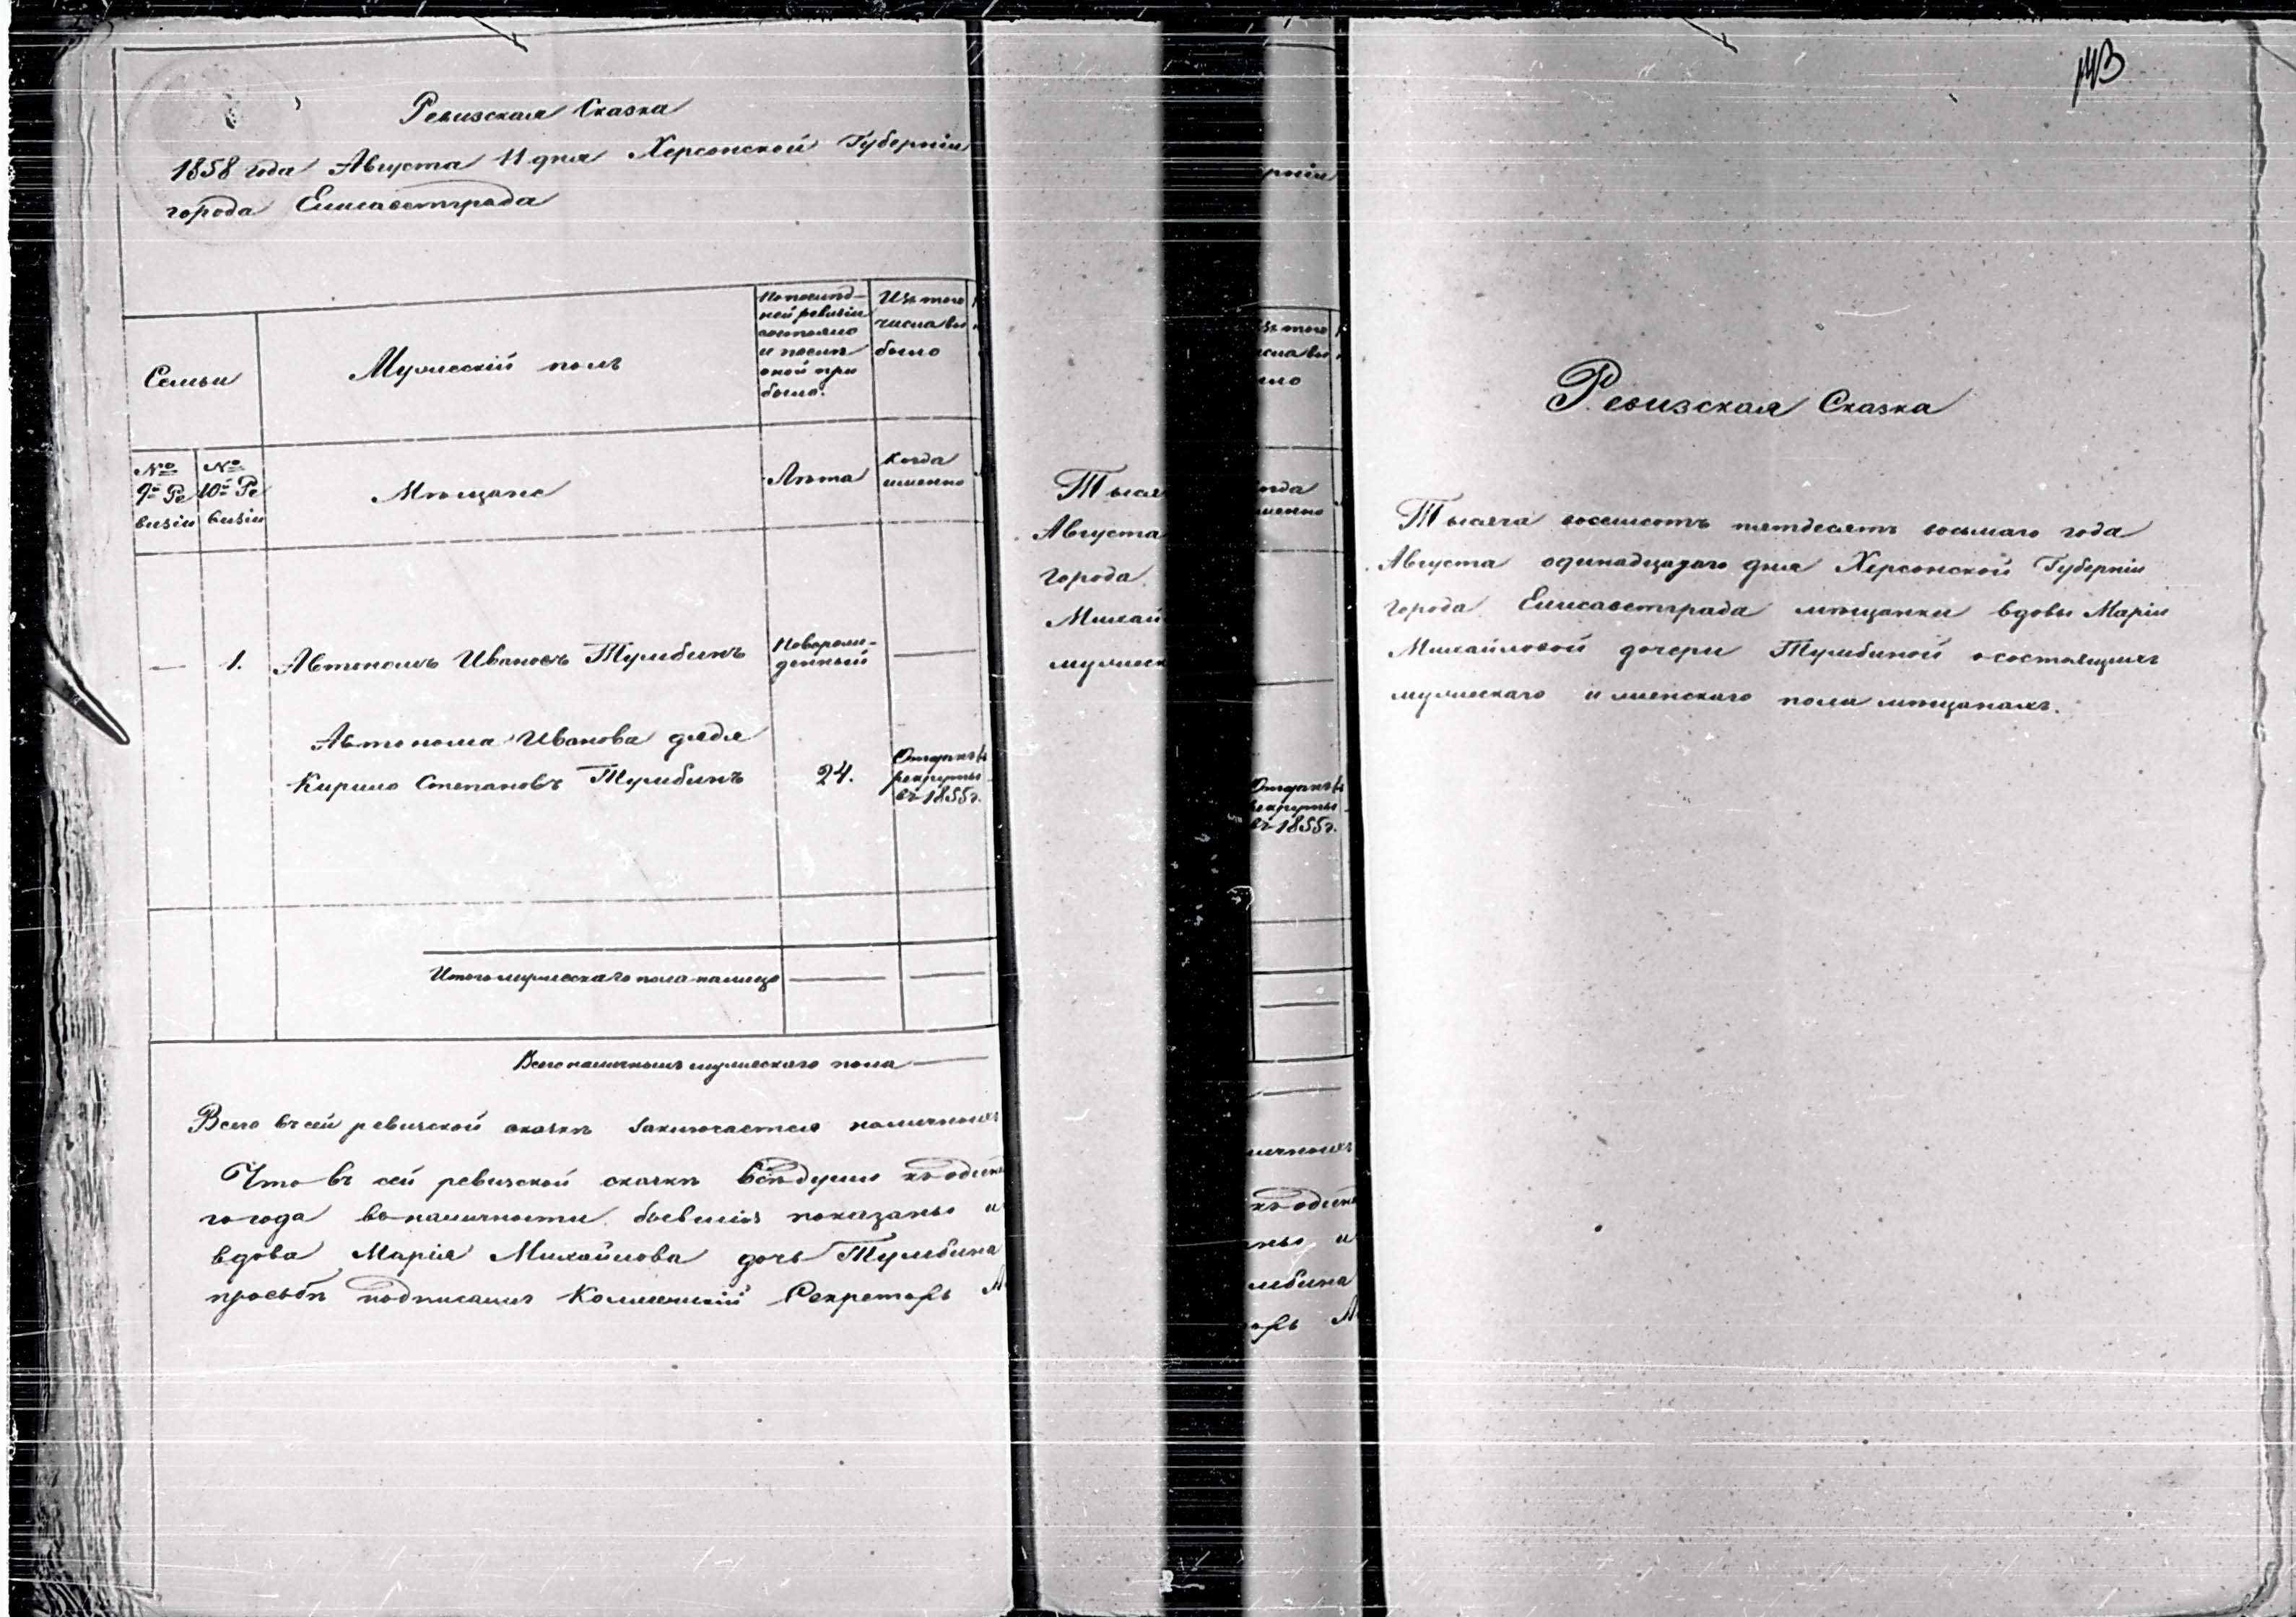 Ревизская Сказка
1858 года Августа 11 дня Херсонской Губерніи
города Елисаветграда
Семьи
Мужескій полъ
По послѣд-
ней ревизіи
состояло
и послѣ
оной при
было.
Изъ того
числа вы
было
№ 9й Ре
визіи
№ 10й Ре
визіи
Мѣщане
Лѣта
Когда
именно
1. Автономъ Ивановъ Тумбинъ
Новорож-
денный
Автонома Иванова дядя
Кирило Степановъ Тумбинъ 24.
Отданъ въ
рекруты
въ 1855 г.
Итого мужескаго пола налицо
Всего наличныхъ мужескаго пола
Всего въ сей ревизской сказкѣ заключается наличныхъ
Что въ сей ревизской сказкѣ всѣ души
го года въ наличности бывшія показаны и
вдова Марія Михайлова дочь Тумбина
просьбѣ подписалъ Коллежскій Секретарь
Тыся
Августа
города
Михай
мужеск
рніи
было
Отданъ въ
рекруты
въ 1855 г.
личныхъ
мбина
арь
143
Ревизская Сказка
Тысяча восемсотъ пятдесятъ восьмаго года
Августа одинадцатаго дня Херсонской Губерніи
города Елисаветграда мѣщанки вдовы Маріи
Михайловой дочери Тумбиной о состоящихъ
мужескаго и женскаго пола мѣщанахъ.